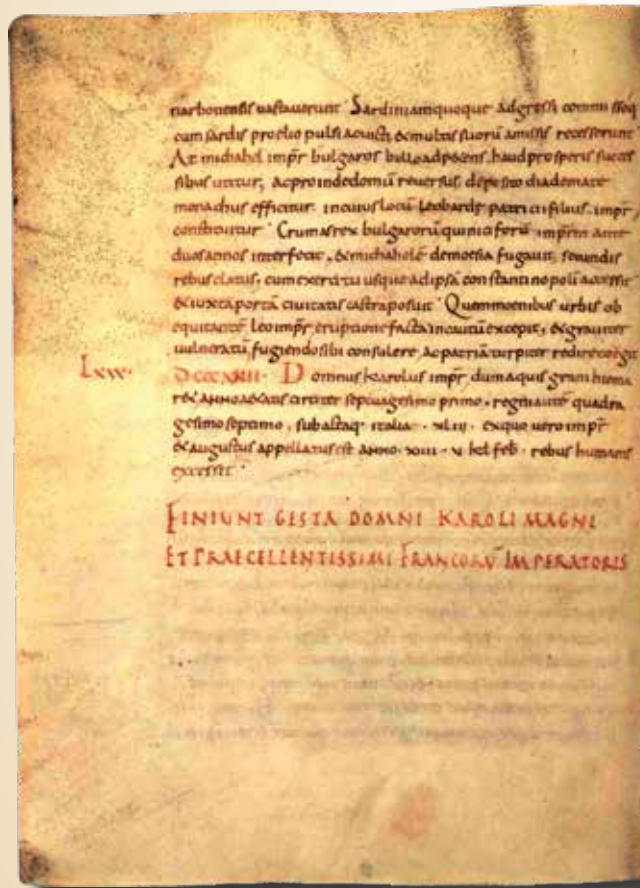 narbonensis uastauerunt Sardiniam quoque adgressi commissoq;
cum sardis proelio pulsi ac uicti & multis suorū amissis recesserunt
At michahel impr̄ bulgaros bello adpetens, haud prosperis succes
sibus utitur, ac proinde domū reuersus deposito diademate
monachus efficitur. in cuius locū leo bardę patricii filius, impr̄,
constituitur. Crumas rex bulgarorū qui niciforū imprm̄ ante
duos annos interfecit, & michahelē de moesia fugauit, secundis
rebus elatus, cum exercitu usque ad ipsā constantinopolī accessit
& iuxta portā ciuitatis castra posuit. Quem moenibus urbis ob
equitantē leo impr̄ eruptione facta incautū excepit, & grauiter
uulneratū, fugiendo sibi consulere, ac patriā turpiter redire coegit
Lxx. DCCCXIIII. Domnus karolus impr̄, dum aquisgrani hiema
r&, anno aetatis circiter septuagesimo primo, regni autē quadra
gesimo septimo, subactaeq; italiae. xliii. ex quo uero impr̄
& augustus appellatus est anno. xiiii. v kal feb. rebus humanis
excessit.
FINIUNT GESTA DOMNI KAROLI MAGNI
ET PRAECELLENTISSIMI FRANCORŪ IMPERATORIS